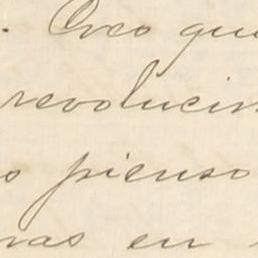 . Creo que
revolucin
s pienso
ras en